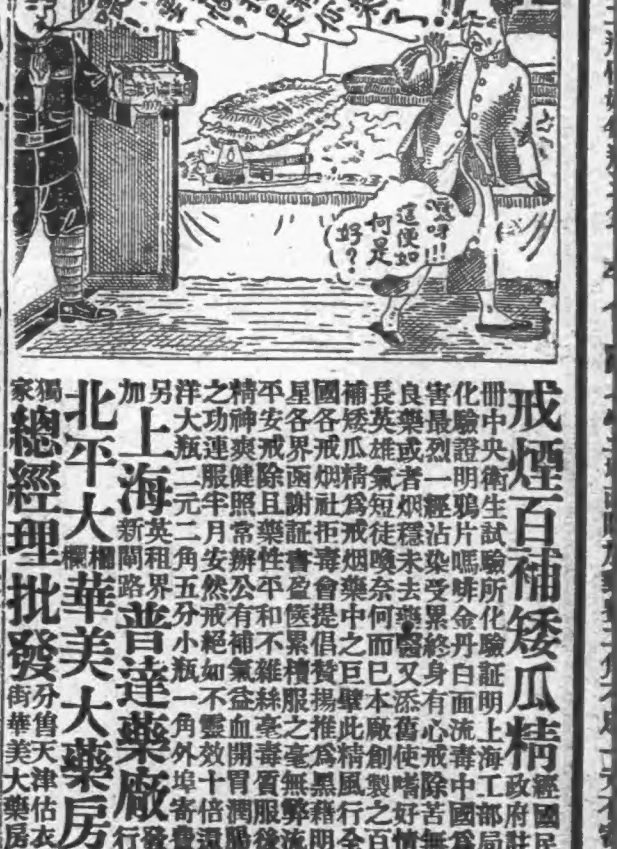 噯呀!!!
這便如
何是
好?
戒煙百補矮瓜精經國民政府註
冊中央衛生試驗所化驗証明上海工部局
化驗證明鴉片嗎啡金丹白面流毒中國爲
害最烈一經沾染受累終身有心戒除苦無
良藥或者烟穩未去藥又添舊使嗜好情
長英雄氣短徒喚奈何而已本廠創製之百
補矮瓜精爲戒烟藥中之巨擘此精風行全
國各戒烟社拒毒會提倡贊揚推爲黑籍明
星各界函謝証書盈篋累櫝服之毫無弊流
平安戒除且藥性平和不雜絲毫毒質服後
精神爽健照常辦公有補氣益血開胃潤腸
之功連服半月安然戒絕如不靈效十倍還
洋大瓶二元二角五分小瓶一角外埠寄費
另加上海英租界新閘路普達藥廠發行
北平大柵欄華美大藥房
獨家總經理批發分售天津估衣街華美大藥房